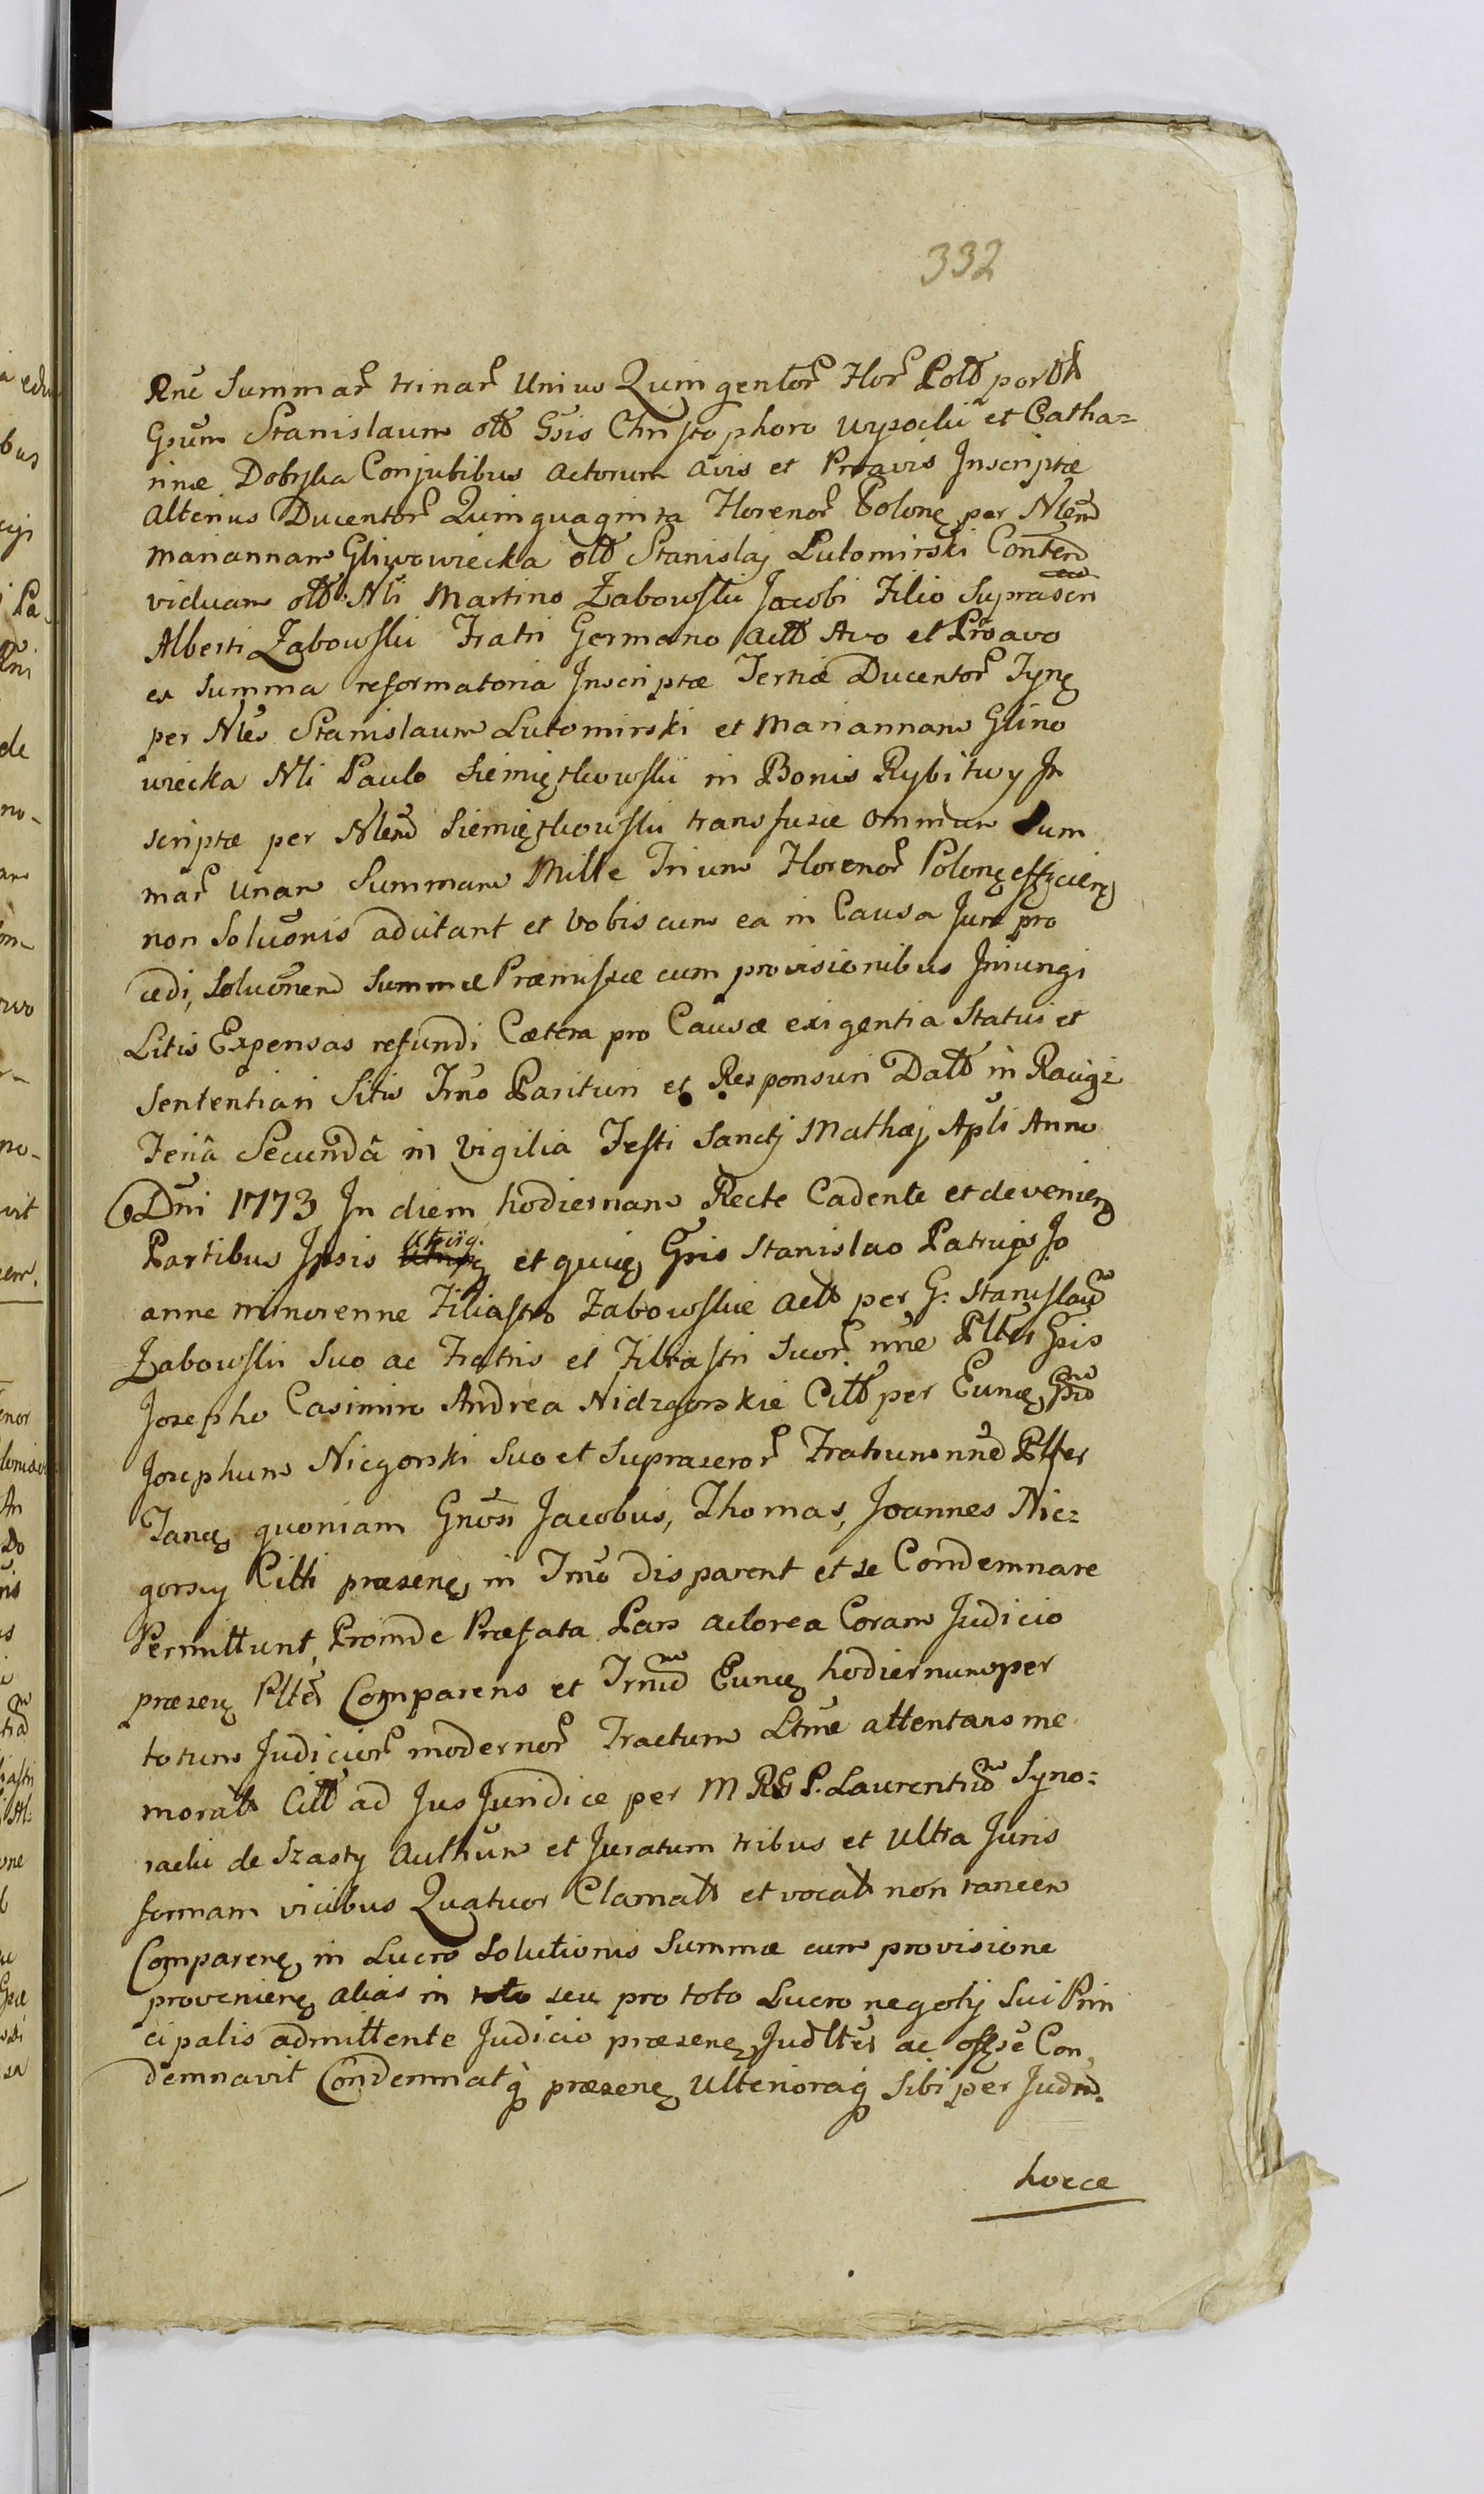 332
Rne Summar trinar Unius Quingentor Flor Poll per
Gsum Stanislaum oll Gsis Christophoro Wysocki et Catha=
rinæ Dobrska Conjugibus actorum avis et Proavis Inscriptæ
alterius Ducentor Quinquaginta Florenor Polonę per Nlem
Mariannam Gliwowiecka oll Stanislaj Lutomirski Contem
viduam oll Nli Martino Zabowski Jacobi Filio Suprascri
Alberti Zabowski Fratri Germano actt Avo et Proavo
ex Summa reformatoria Inscriptæ Tertiæ Ducentor Tynę
per Nles Stanislaum Lutomirski et Mariannam Glino
wiecka Nli Paulo Siemiętkowski in Bonis Rybitwy In
scriptæ per Nlem Siemiętkowski transfusæ omnium Sum
mar unam Summam Mille Trium Florenor Polonę efficienę
non Soluonis adcitant et vobiscum ea in Causa Jure pro
cedi, Soluonem Summæ Præmissæ cum provisionibus Iniungi
Litis Expensas refundi Cætera pro Causæ exigentia Statui et
Sententiari Sitis Trno Parituri et Responsuri Datt in Raciąz
Feriâ Secundâ in Vigilia Festi Sancti Mathæj Apli Anno
Dni 1773 In diem hodiernam Recte Cadente et devenien
Partibus Ipsis utrisq. et quię Gsis Stanislao Patrujs Jo
anne minorenne Filiastro Zabowskie actt per G: Stanislaum
Zabowski Suo ac Fratris et Filiastri Suor nne Plter Gsis
Josepho Casimiro Andrea Nidzgorskie Citt per Eunę Gsum
Josephum Nicgorski Suo et Suprascror Fratrum nne Plter
Tanę quoniam Gnosi Jacobus, Thomas, Joannes Nic=
gorscy Citti præsenę in Trno disparent et se Condemnare
Permittunt, Proinde Præfata Pars actorea Coram Judicio
præsenę Plter Comparens et Trnum Eunę hodiernum per
totum Judicior modernor Tractum Ltme attentans me
moratt Citt ad Jus Juridice per M RG P. Laurentium Syno=
radzki de Szasty authum et Juratum tribus et Ultra Juris
formam vicibus Quatuor Clamatt et vocatt non tamen
Comparenę in Lucro Solutionis Summæ cum provisione
provenienę alias in toto seu pro toto Lucro negotij Sui Prin
cipalis admittente Judicio præsenę Judlter ac offse Con
demnavit Condemnatq præsenę Ulterioraq Sibi per Judm.
hocce